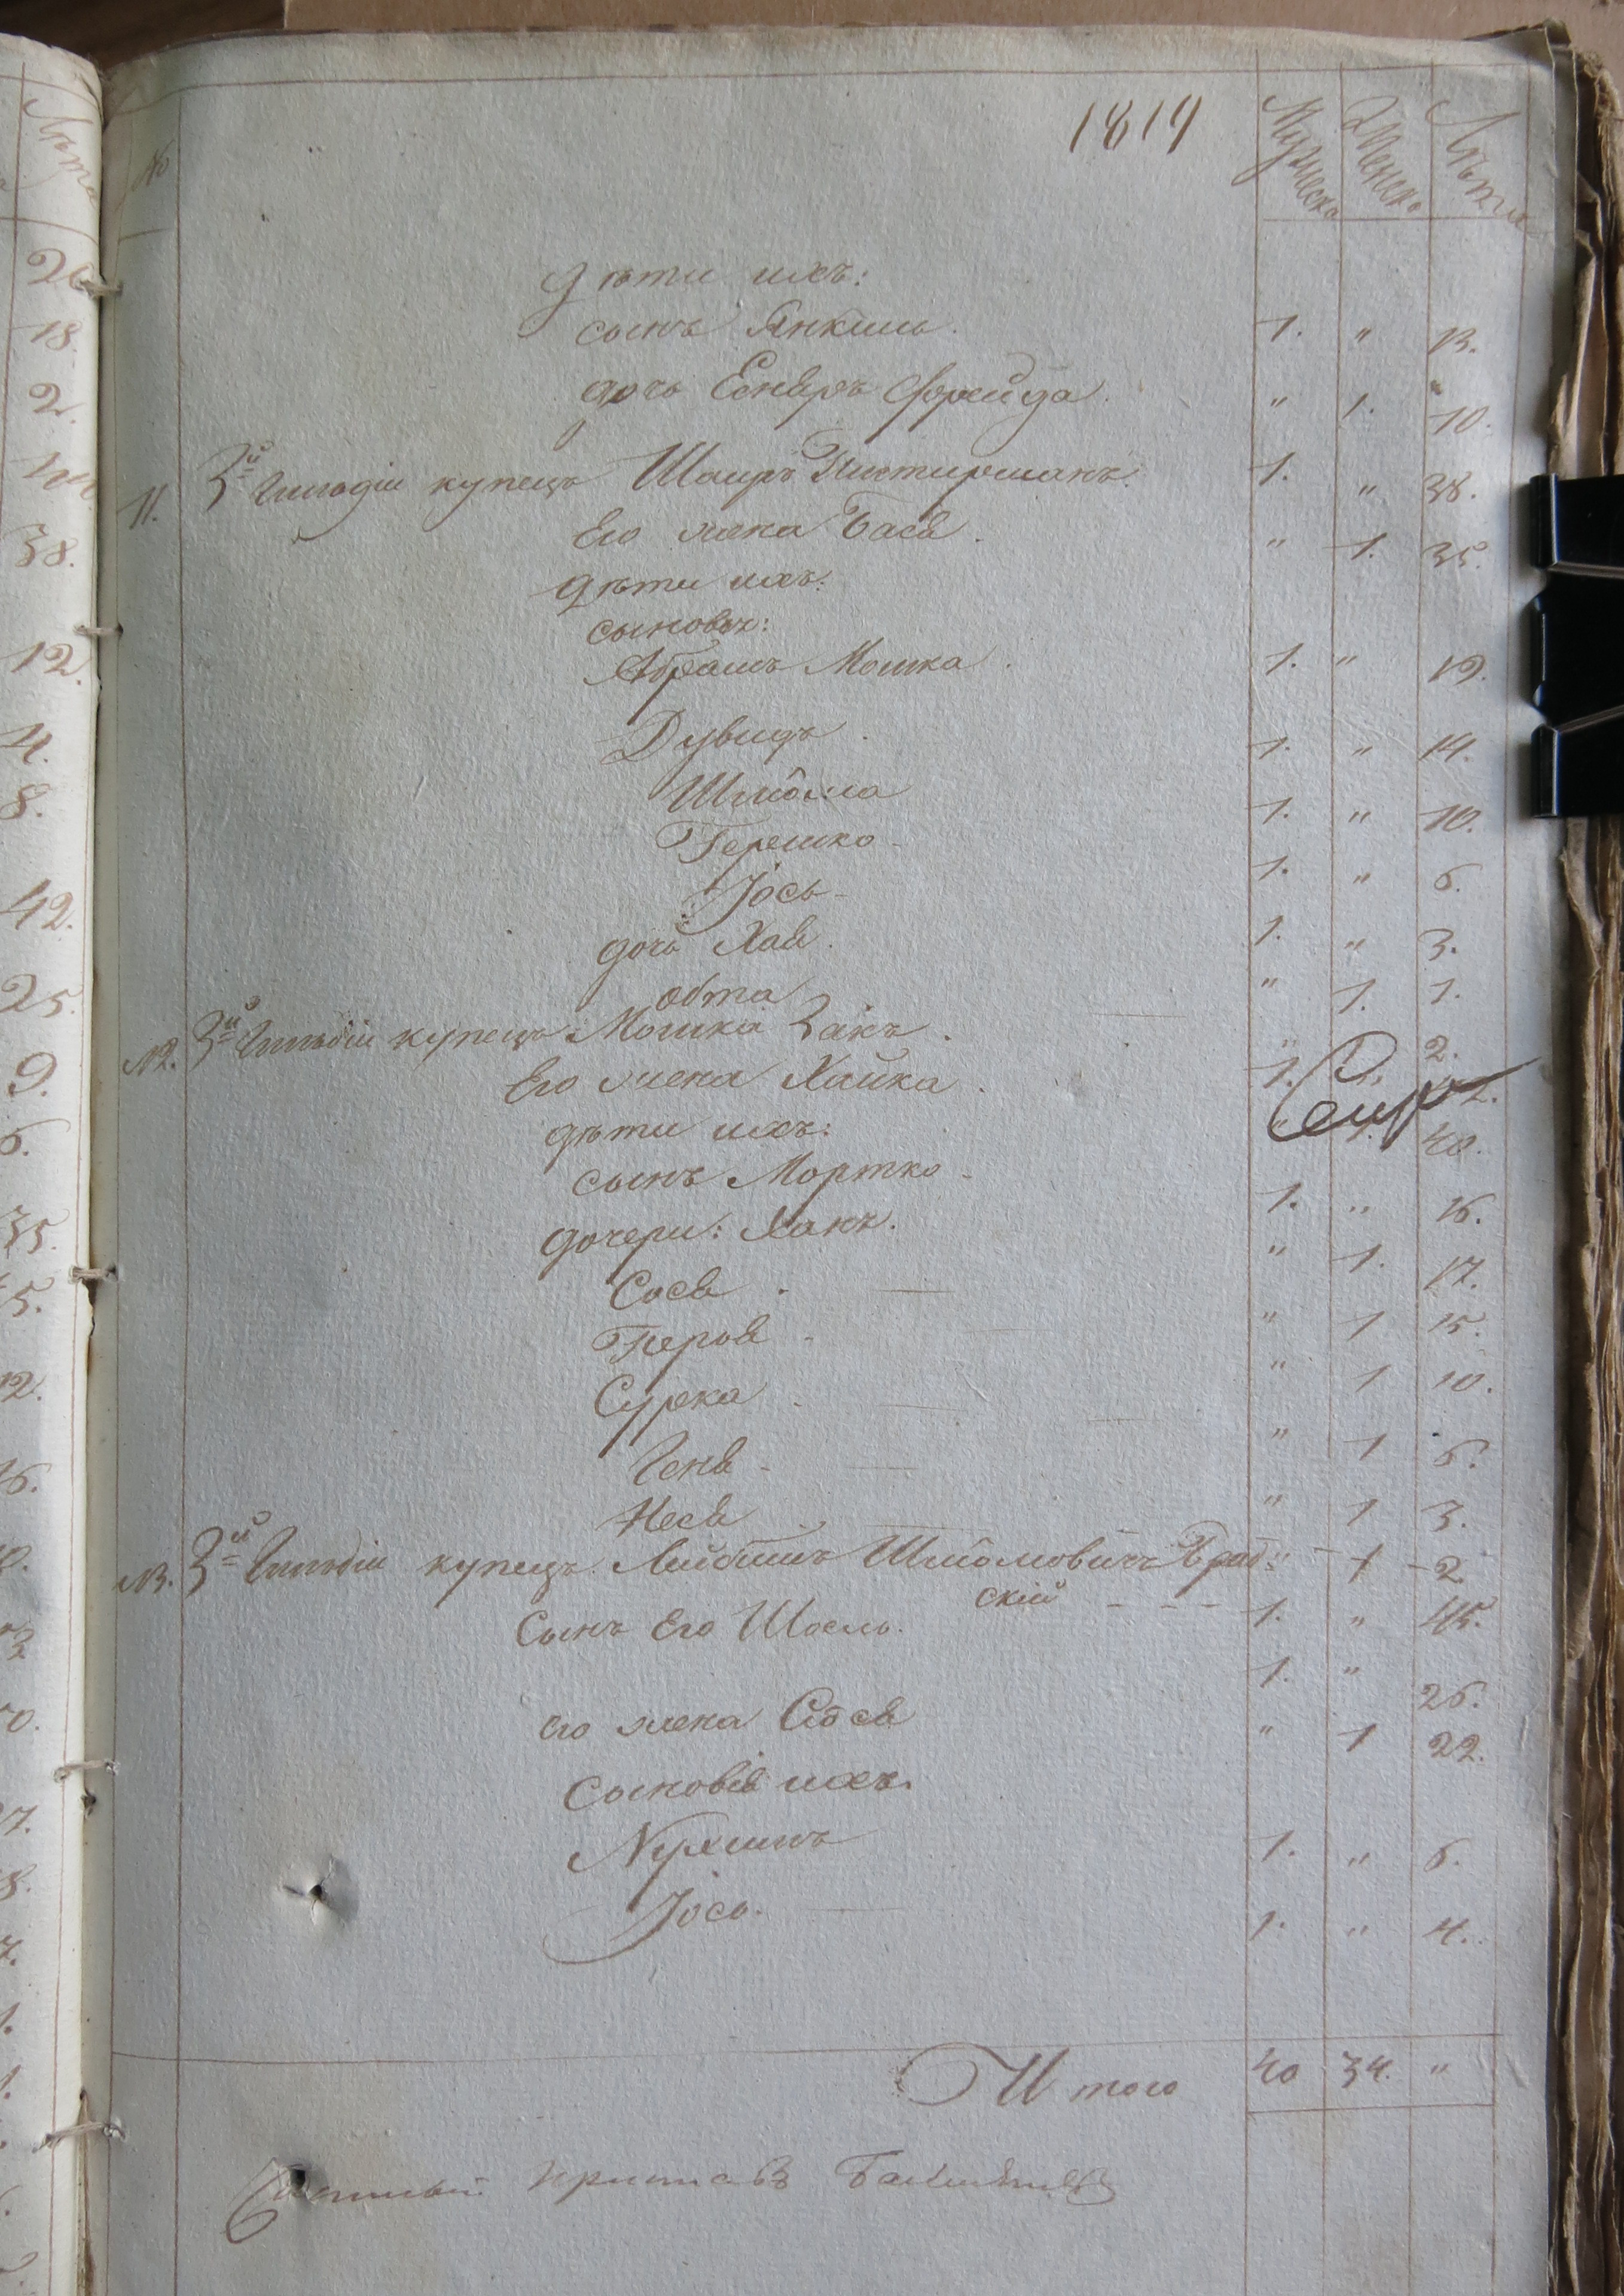 1819
№ Мужеска Женска Лѣта
Дѣти ихъ:
сынъ Янкиль. 1. " 13.
дочь Фрейда. " 1. 10.
11. 3й Гильдіи купецъ Шаиръ 1. " 38.
Его жена Бася. " 1. 35.
Дѣти ихъ:
сыновья:
Абрамъ Мошка. 1. " 19.
Дувидъ. 1. " 14.
Шліома 1. " 10.
Гершко 1. " 6.
Іось 1. " 3.
дочь Хая. " 1. 1.
" 1. 2.
12. 3й Гильдіи купецъ Мошка Закъ. 1. "
Его жена Хайка. " 1. 40.
Дѣти ихъ:
сынъ Мортко 1. " 16.
дочери: Ханя. " 1. 17.
Сося. " 1 15.
Перля " 1 10.
Сурка " 1 6.
Геня " 1 3.
Неся " 1 2
13. 3й Гильдіи купецъ Лейбишъ Шліомовичъ Брод=
скій 1. " 45.
Сынъ Его Шоель. 1. " 26.
его жена Сося " 1 22.
Сыновья ихъ.
Нухимъ 1. " 6.
Іось. 1. " 4.
Итого 40 34. "
приставъ